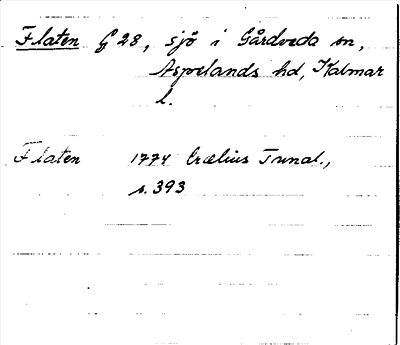 Flaten G 28, sjö i Gårdveda sn,
Aspelands hd, Kalmar
l.
Flaten 1774 Crælius Tunal.,
s. 393